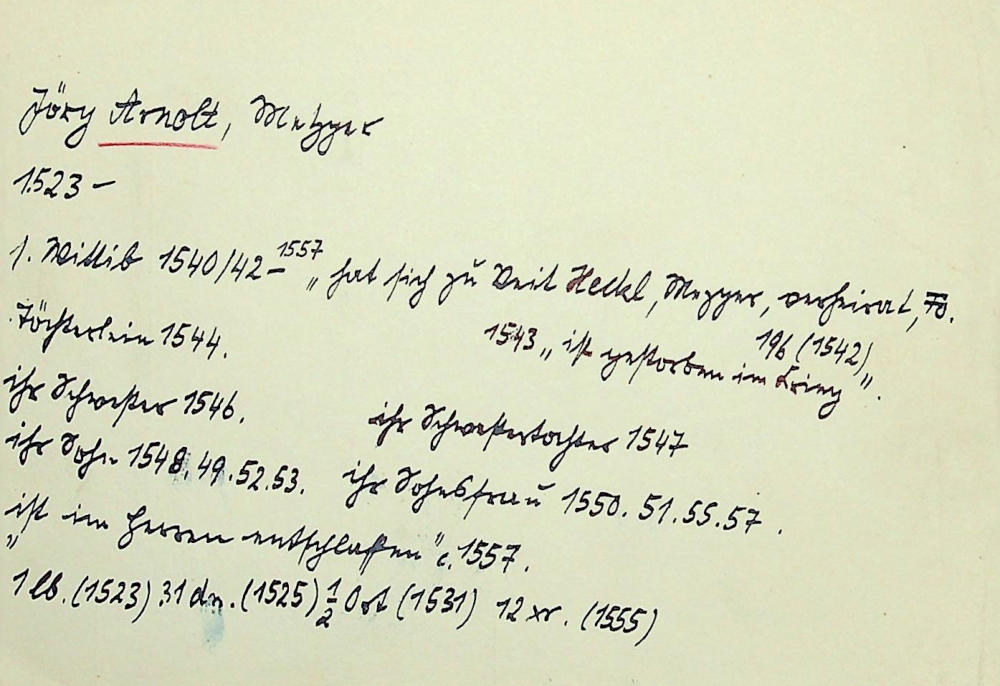 Jörg Arnolt, Metzger
1523 –
s. Wittib 1540/42 – 1557 „hat sich zu Veit Heckl, Mezger, verheirat, Fo. 196 (1542)“
Töchterlein 1544. 1543 „ist gestorben im Krieg“.
ihr Schwester 1546. ihr Schwestertochter 1547
ihr Sohn 1548. 49. 52. 53. ihr Sohnsfrau 1550. 51. 55. 57.
„ist im Herren entschlaffen“ c. 1557.
1 lb. (1523) 31 dn. (1525) ½ Ort (1531) 12 xr. (1555)